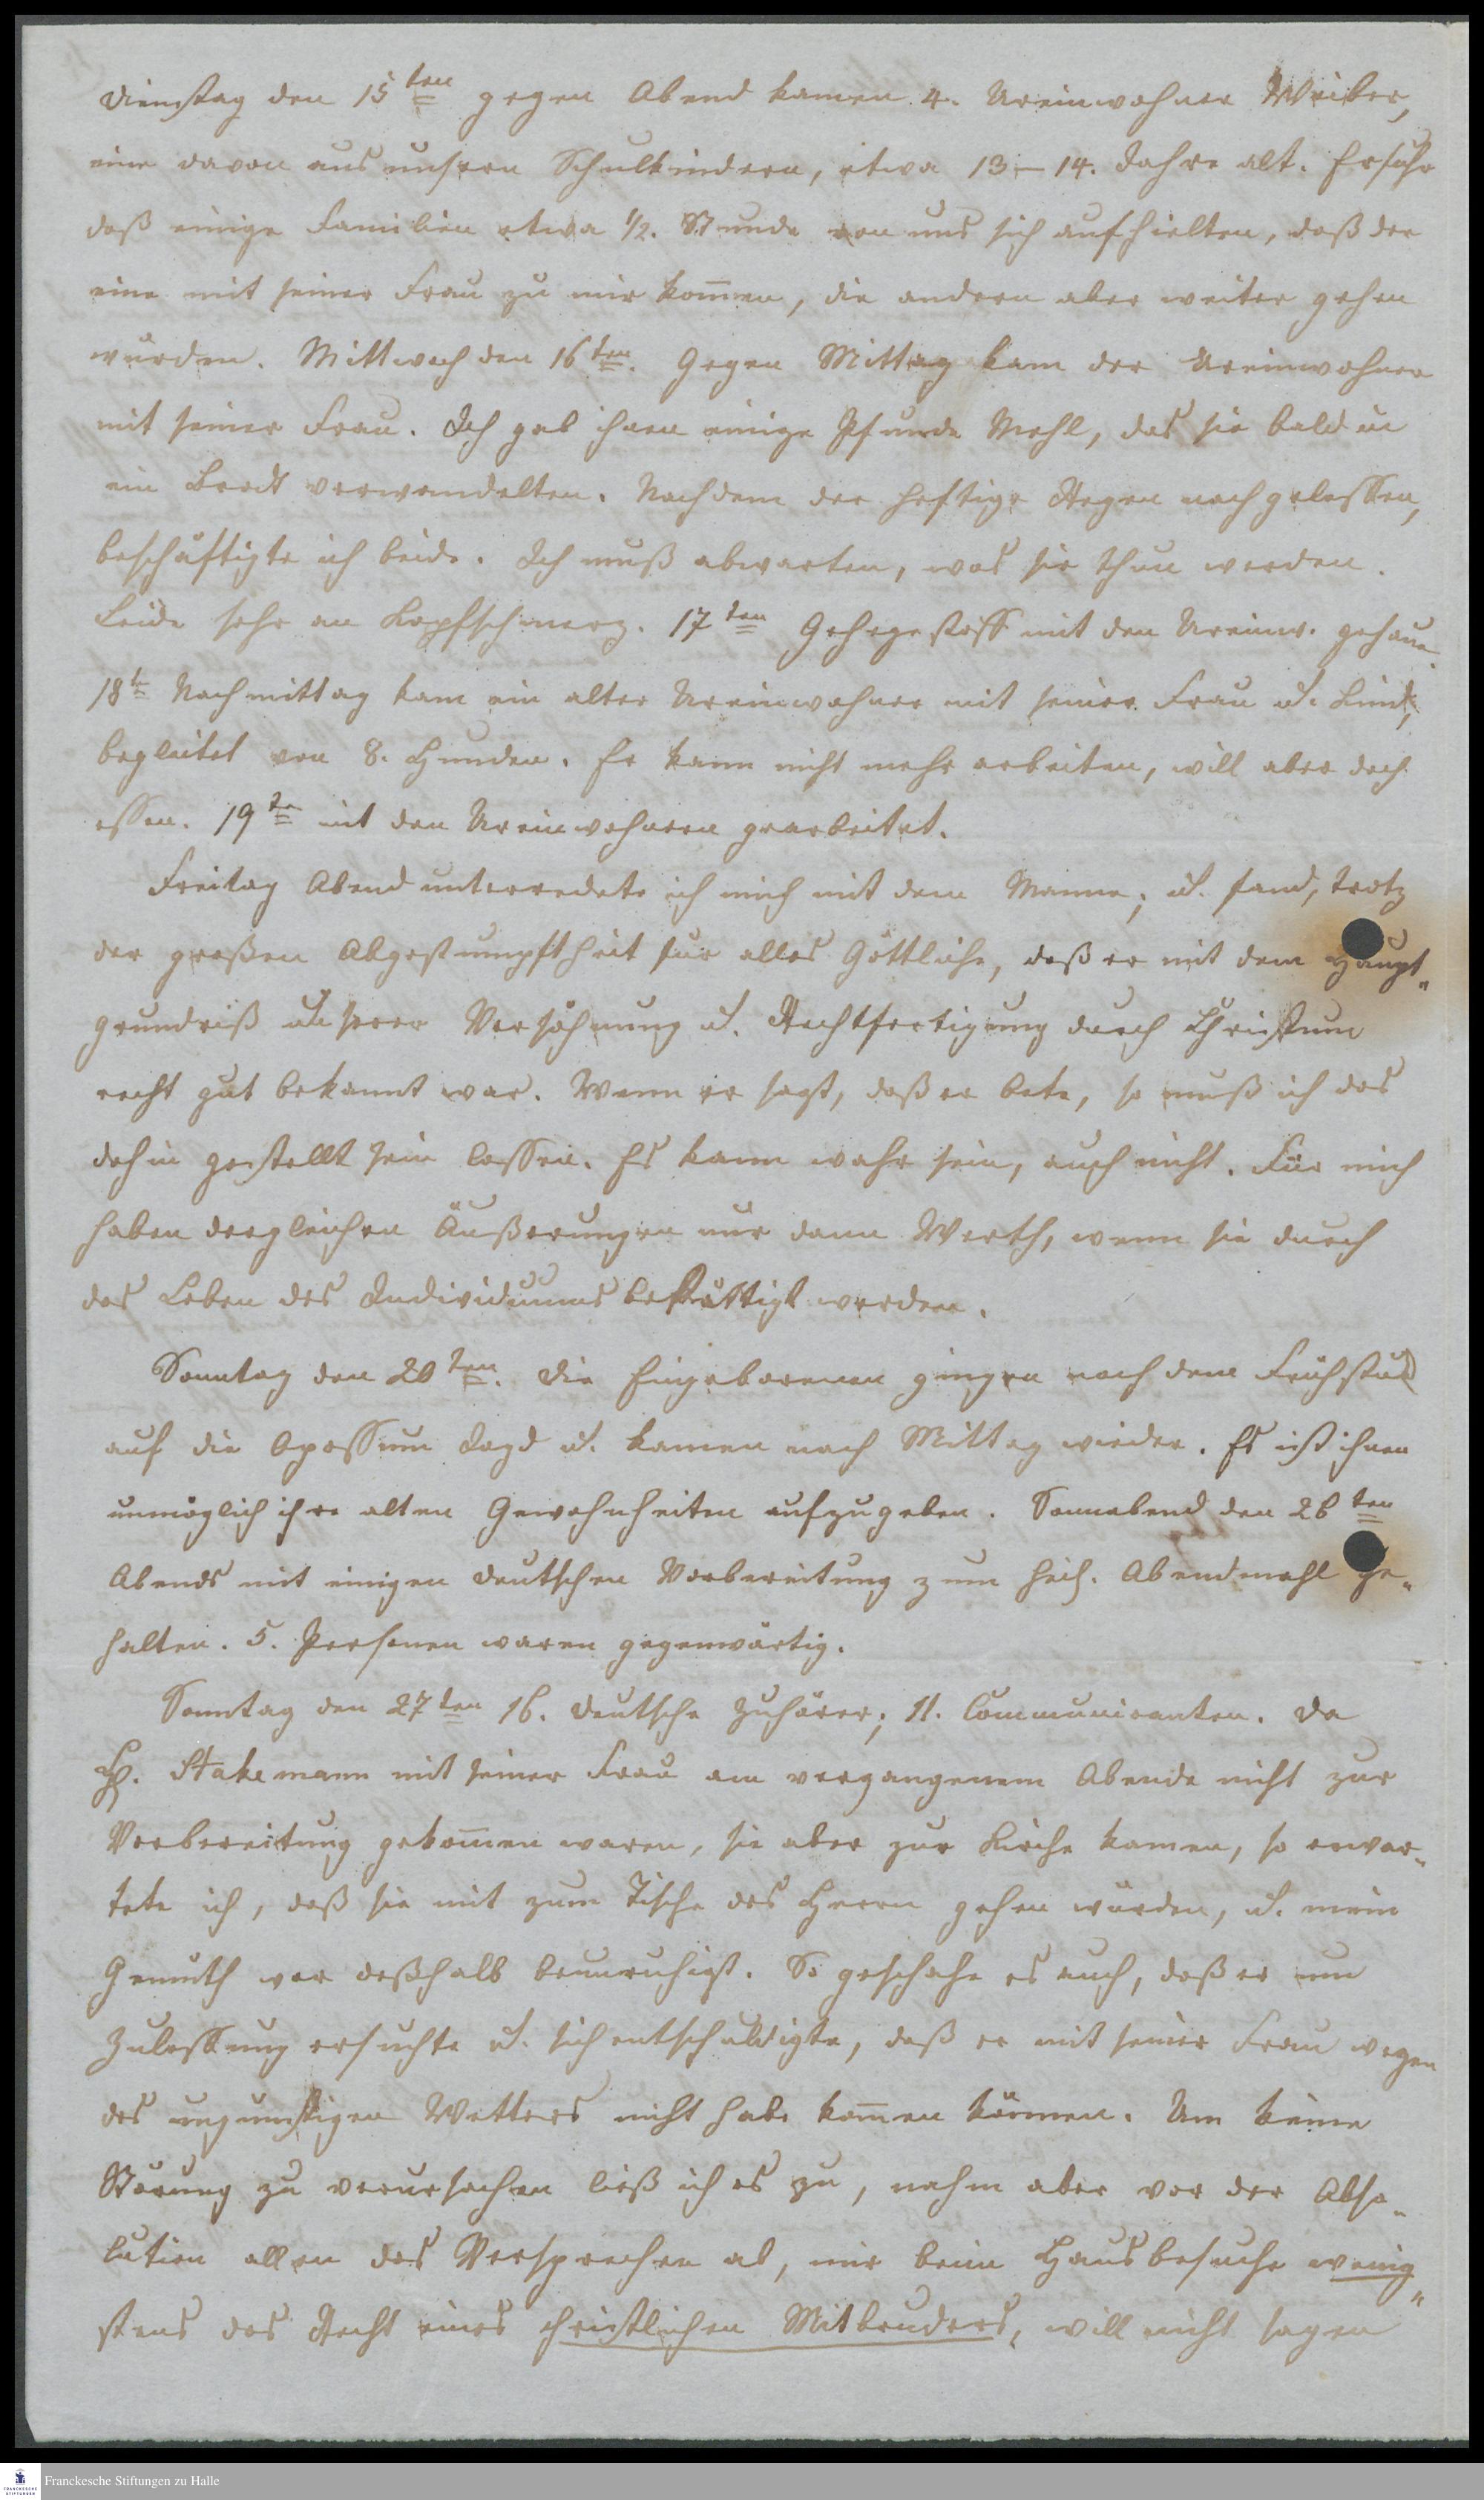 Dienstag den 15ten gegen Abend kamen 4. Ureinwohner Weiber,
eine davon aus unsern Schulkindern, etwa 13–14. Jahre alt. Erfuhr
daß einige Familien etwa 1/2. Stunde von uns sich aufhielten, daß der
eine mit seiner Frau zu mir kom̄en, die andern aber weiter gehen
würden. Mittwoch den 16ten. Gegen Mittag kam der Ureinwohner
mit seiner Frau. Ich gab ihnen einige Pfunde Mehl, das sie bald in
ein Brodt verwandelten. Nachdem der heftige Regen nachgelassen,
beschäftigte ich beide. Ich muß abwarten, was sie thun werden.
Leide sehr an Kopfschmerz. 17ten Gehegestoff mit den Ureinw. gehauen.
18t Nachmittag kam ein alter Ureinwohner mit seiner Frau u. Kind,
begleitet von 8. Hunden. Er kann nicht mehr arbeiten, will aber doch
essen. 19tn mit den Ureinwohnern gearbeitet.
Freitag Abend unterredete ich mich mit dem Manne; u. fand, trotz
der großen Abgestumpftheit für alles Göttliche, daß er mit dem Haupt„
grundriß unserer Versöhnung u. Rechtfertigung durch Christum
recht gut bekannt war. Wenn er sagt, daß er bete, so muß ich das
dahin gestellt sein lassen. Es kann wahr sein, auch nicht. Für mich
haben dergleichen Äußerungen nur dann Werth, wenn sie durch
das Leben des Individuums bestättigt werden.
Sonntag den 20ten. Die Eingeborenen gingen nach dem Frühstück
auf die Opossum Jagd u. kamen nach Mittag wieder. Es ist ihnen
unmöglich ihre alten Gewohnheiten aufzugeben. Sonnabend den 26ten
Abends mit einigen Deutschen Vorbereitung zum heil. Abendmahl ge„
halten. 5. Personen waren gegenwärtig.
Sonntag den 27ten 16. Deutsche Zuhörer; 11. Communicanten. Da
H. Stakemann mit seiner Frau am vergangenem Abende nicht zur
Vorbereitung gekom̄en waren, sie aber zur Kirche kamen, so erwar„
tete ich, daß sie mit zum Tische des Herrn gehen würden, u. mein
Gemüth war deßhalb beunruhigt. So geschahe es auch, daß er um
Zulassung ersuchte u. sich entschuldigte, daß er mit seiner Frau wegen
des ungünstigen Wetters nicht habe kom̄en können. Um keine
Störung zu verursachen ließ ich es zu, nahm aber vor der Abso„
lution allen das Versprechen ab, mir beim Hausbesuche wenig„
stens das Recht eines christlichen Mitbruders, will nicht sagen
Franckesche Stiftungen zu Halle